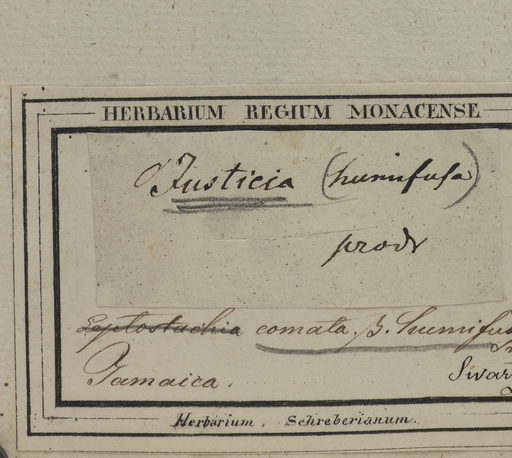 HERBARIUM REGIUM MONACENSE
Justicia (humifusa)
prodr
Leptostachia comata β. humifus
Jamaica.
Swar
Herbarium Schreberianum.